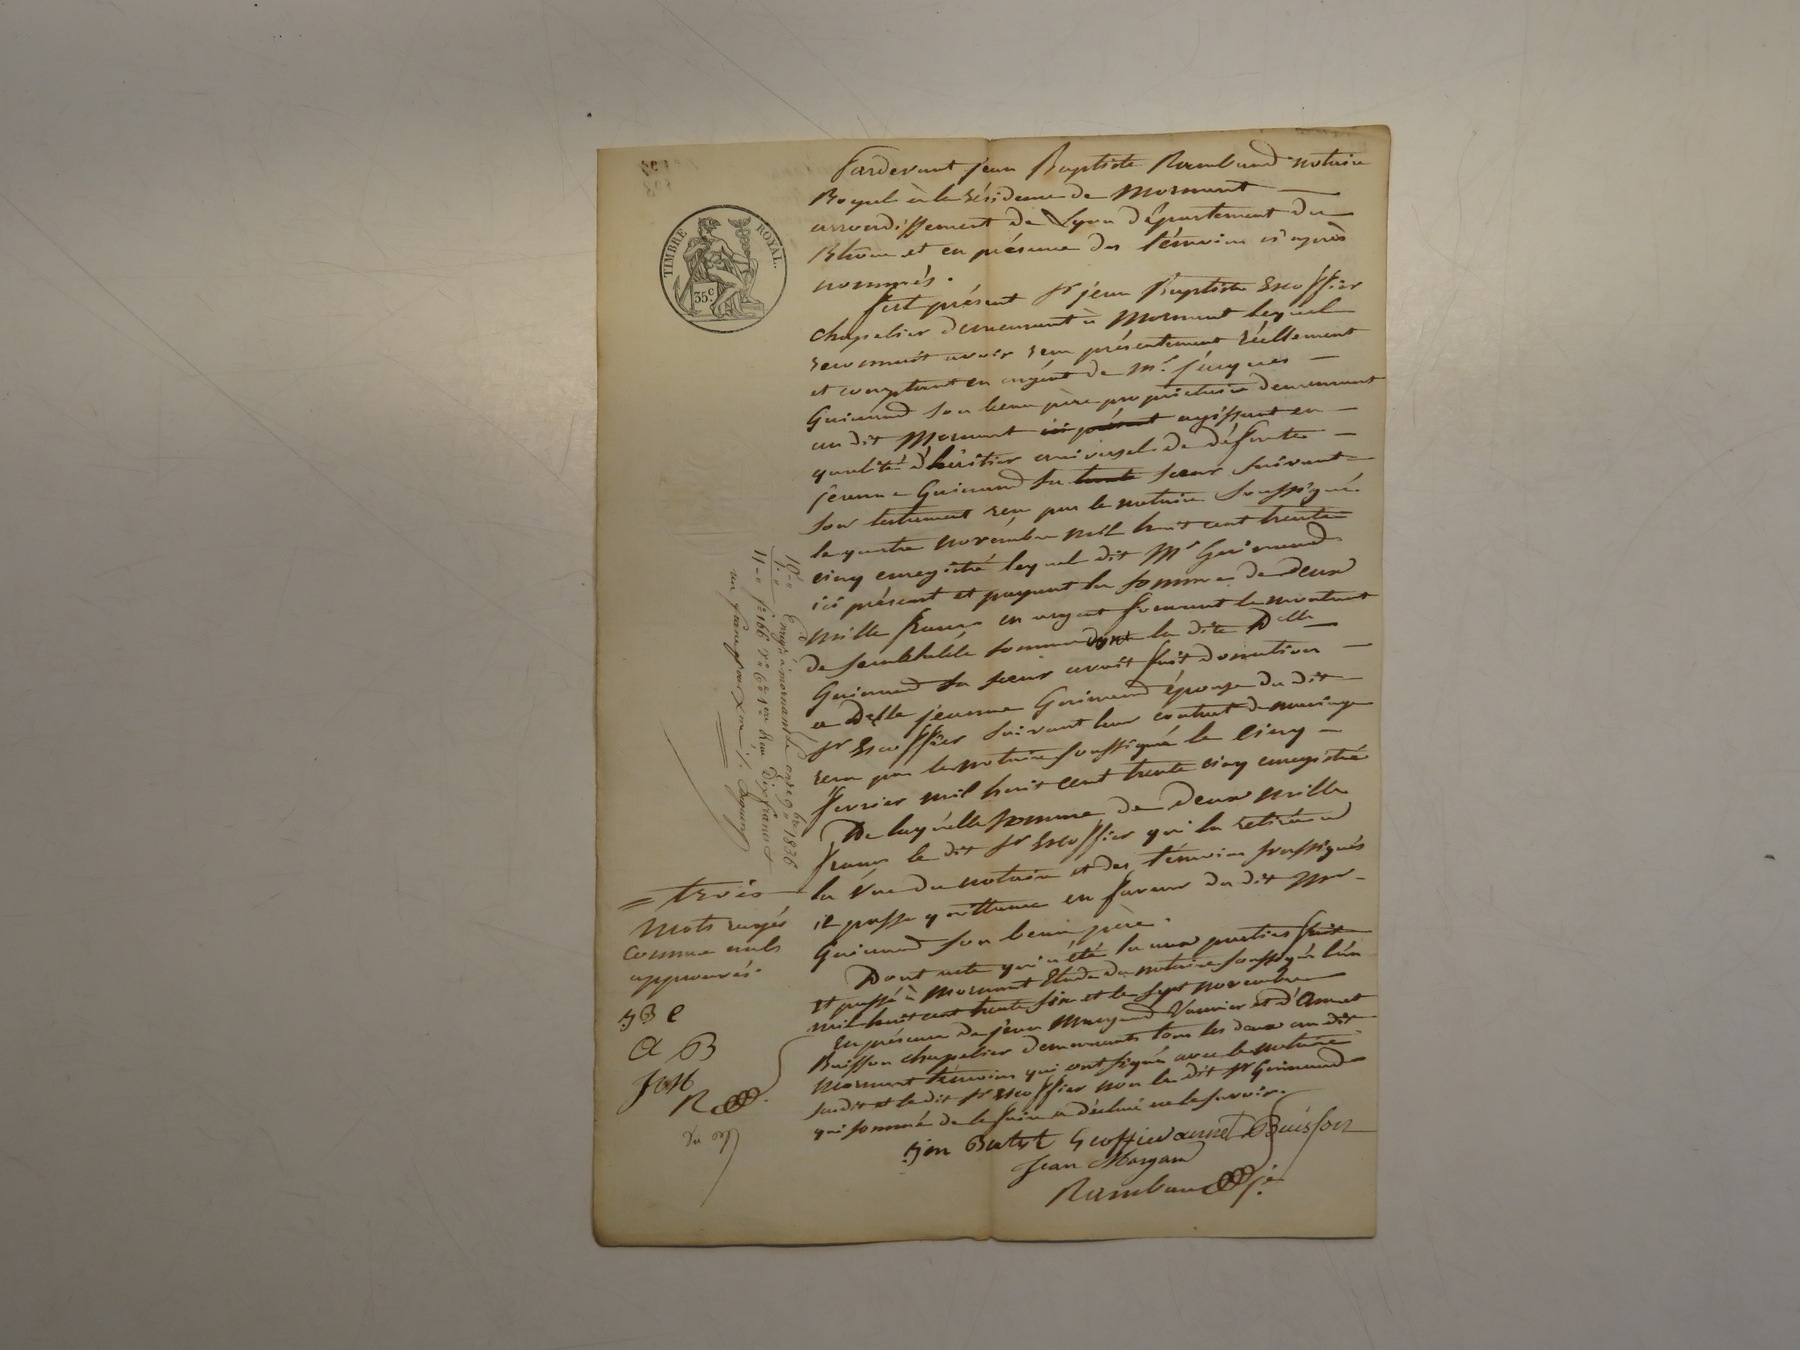 TIMBRE ROYAL.
35c
Pardevant jean Baptiste Rambaud notaire
Royal à la résidence de Mornant
arrondissement de Lyon département du
Rhône et en présence des témoins ci après
nommés.
fut présent sr jean Baptiste Escoffier
chapelier demeurant à Mornant lequel
reconnait avoir reçu présentement réellement
et comptant en argent de Mr. jacques
Guinand son beau père propriétaire demeurant
au dit Mornant ici présent agissant en
qualité d'héritier universel de défunte
jeanne Guinand sa tante sœur suivant
son testament reçu par le notaire soussigné
le quatre novembre mil huit cent trente
cinq enregistré lequel dit Mr Guinand
ici présent et payant la somme de deux
mille francs en argent formant le montant
de semblable somme dont la dite Delle
Guinand sa sœur avoit fait donation
a Delle jeanne Guinand épouse du dit
sr Escoffier suivant leur contrat de mariage
reçu par le notaire soussigné le cinq
fevrier mil huit cent trente cinq enregistré
De laquelle somme de deux mille
francs le dit sr Escoffier qui la retirée a
la vue du notaire et des témoins soussignés
il passe quittance en faveur du dit Mr
Guinand son beau père.
Dont acte qui a été lu aux parties fait
et passé à Mornant Etude du notaire soussigné l'an
mil huit cent trente six et le sept novembre
En présence de jean Margand et d'Annet
Buisson chapelier demeurants tous les deux au dit
Mornant témoins qui ont signé avec le notaire
susdit et le dit sr Escoffier non le dit sr Guinand
qui sommé de le faire a déclaré ne le savoir.
jen Batist Escoffier annet Buisson
Jean Margand
Rambaud
= trois
mots rayés
comme nuls
approuvés.
j B e
a B
R
10-"
1-"
11-"
Enregé à mornant le onze 9bre 1836
fo 166 Ro Cse 1ere Reçu Dix francs et
un franc pour Xme